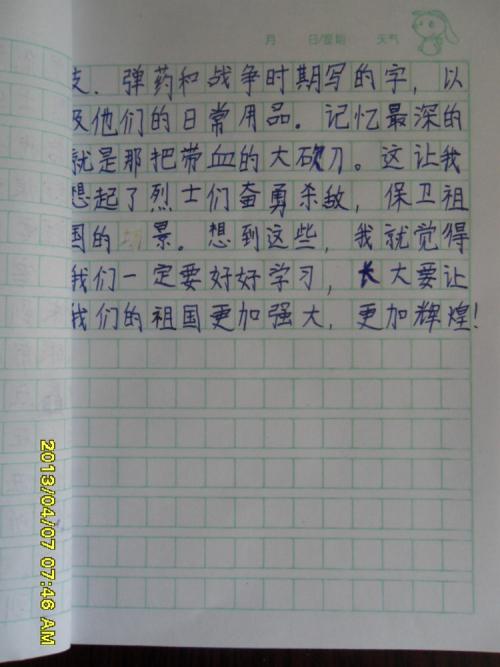 月 日/星期 天气
支、弹药和战争时期写的字，以
及他们的日常用品。记忆最深的
就是那把带血的大砍刀。这让我
想起了烈士们奋勇杀敌，保卫祖
国的场景。想到这些，我就觉得
我们一定要好好学习，长大要让
我们的祖国更加强大，更加辉煌！
2013/04/07 07:46 AM